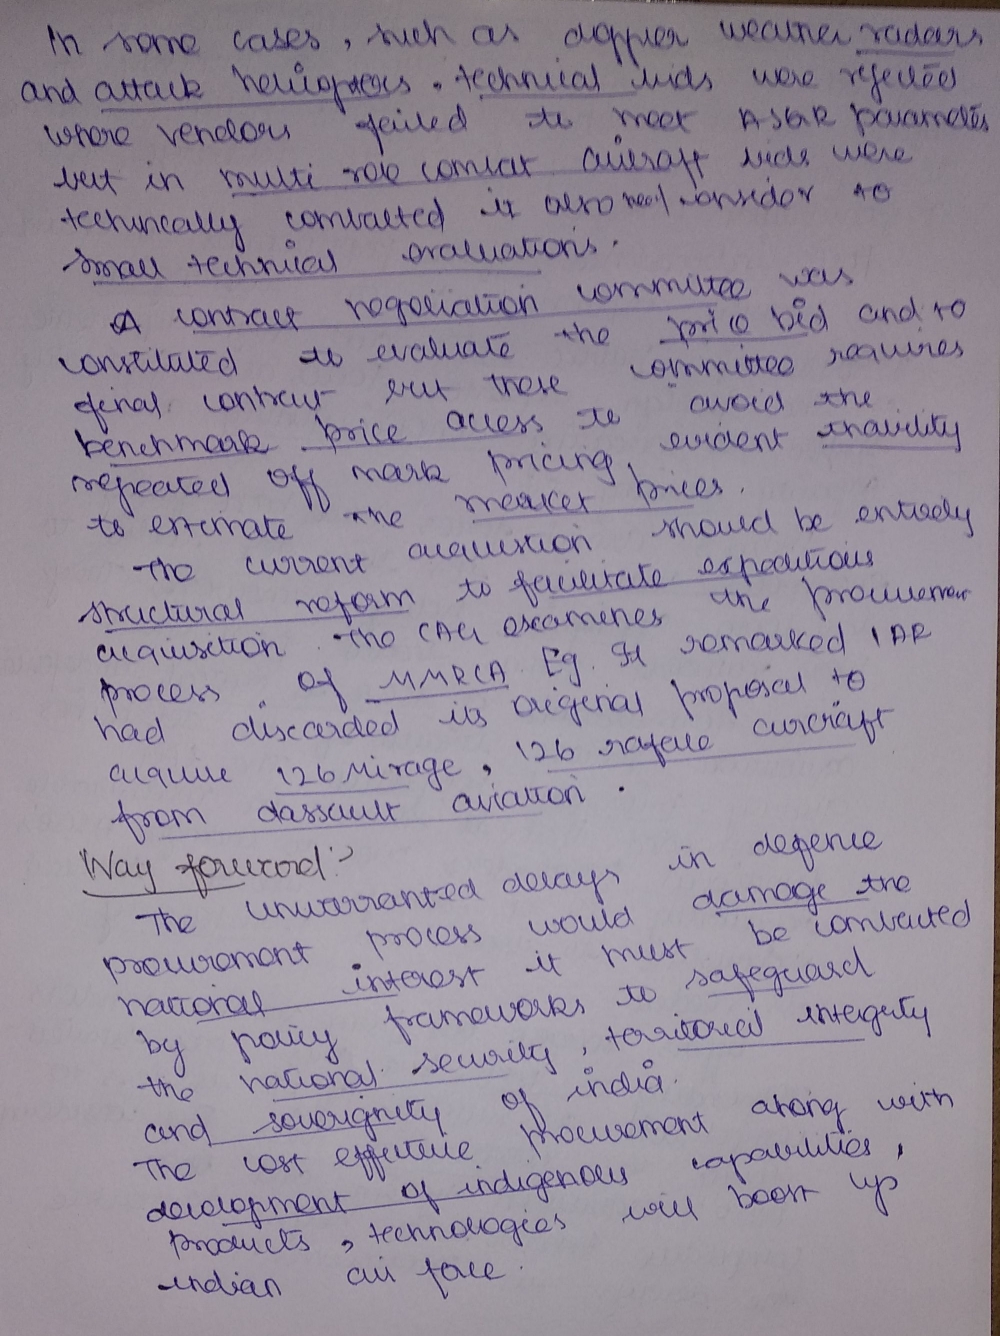 In some cases, such as doppler weather radars
and attack helicopters. technical bids were rejected
where vendors failed to meet ASQR parametes
but in multi role combat aircraft bids were
technically combacted it also consider to
small technical evaluations.
A contract negotiation committee was
constituted to evaluate the price bid and to
final contract but these committee requires
benchmark price access to avoid the
repeated off mark pricing, evident inability
to estimate the market prices.
The current acquistion should be entirely
structural reform to facilitate expeditious
acquisition. The CAG examenes the procurement
process of MMRCA Eg. It remarked IAF
had discarded its original proposal to
acquire 126 Mirage, 126 rafale aircraft
from dassault aviation.
Way forword:-
The unwarranted delays in defence
procurement process would damage the
national interest it must be combacted
by policy frameworks to safeguard
the national security, territorial integrity
and soverignity of india.
The cost effective procurement along with
development of indigenous capabilities,
products, technologies will boost up
indian air force.